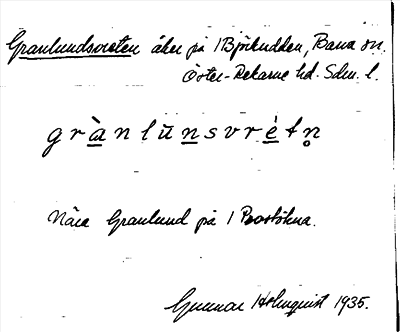 Granlundsvreten åker på 1 Björkudden, Barva sn.
Öster-Rekarne hd. Sdm. l.
g r à n l ŭ n s v r è t n̥
Nära Granlund på 1
Gunnar Holmquist 1935.